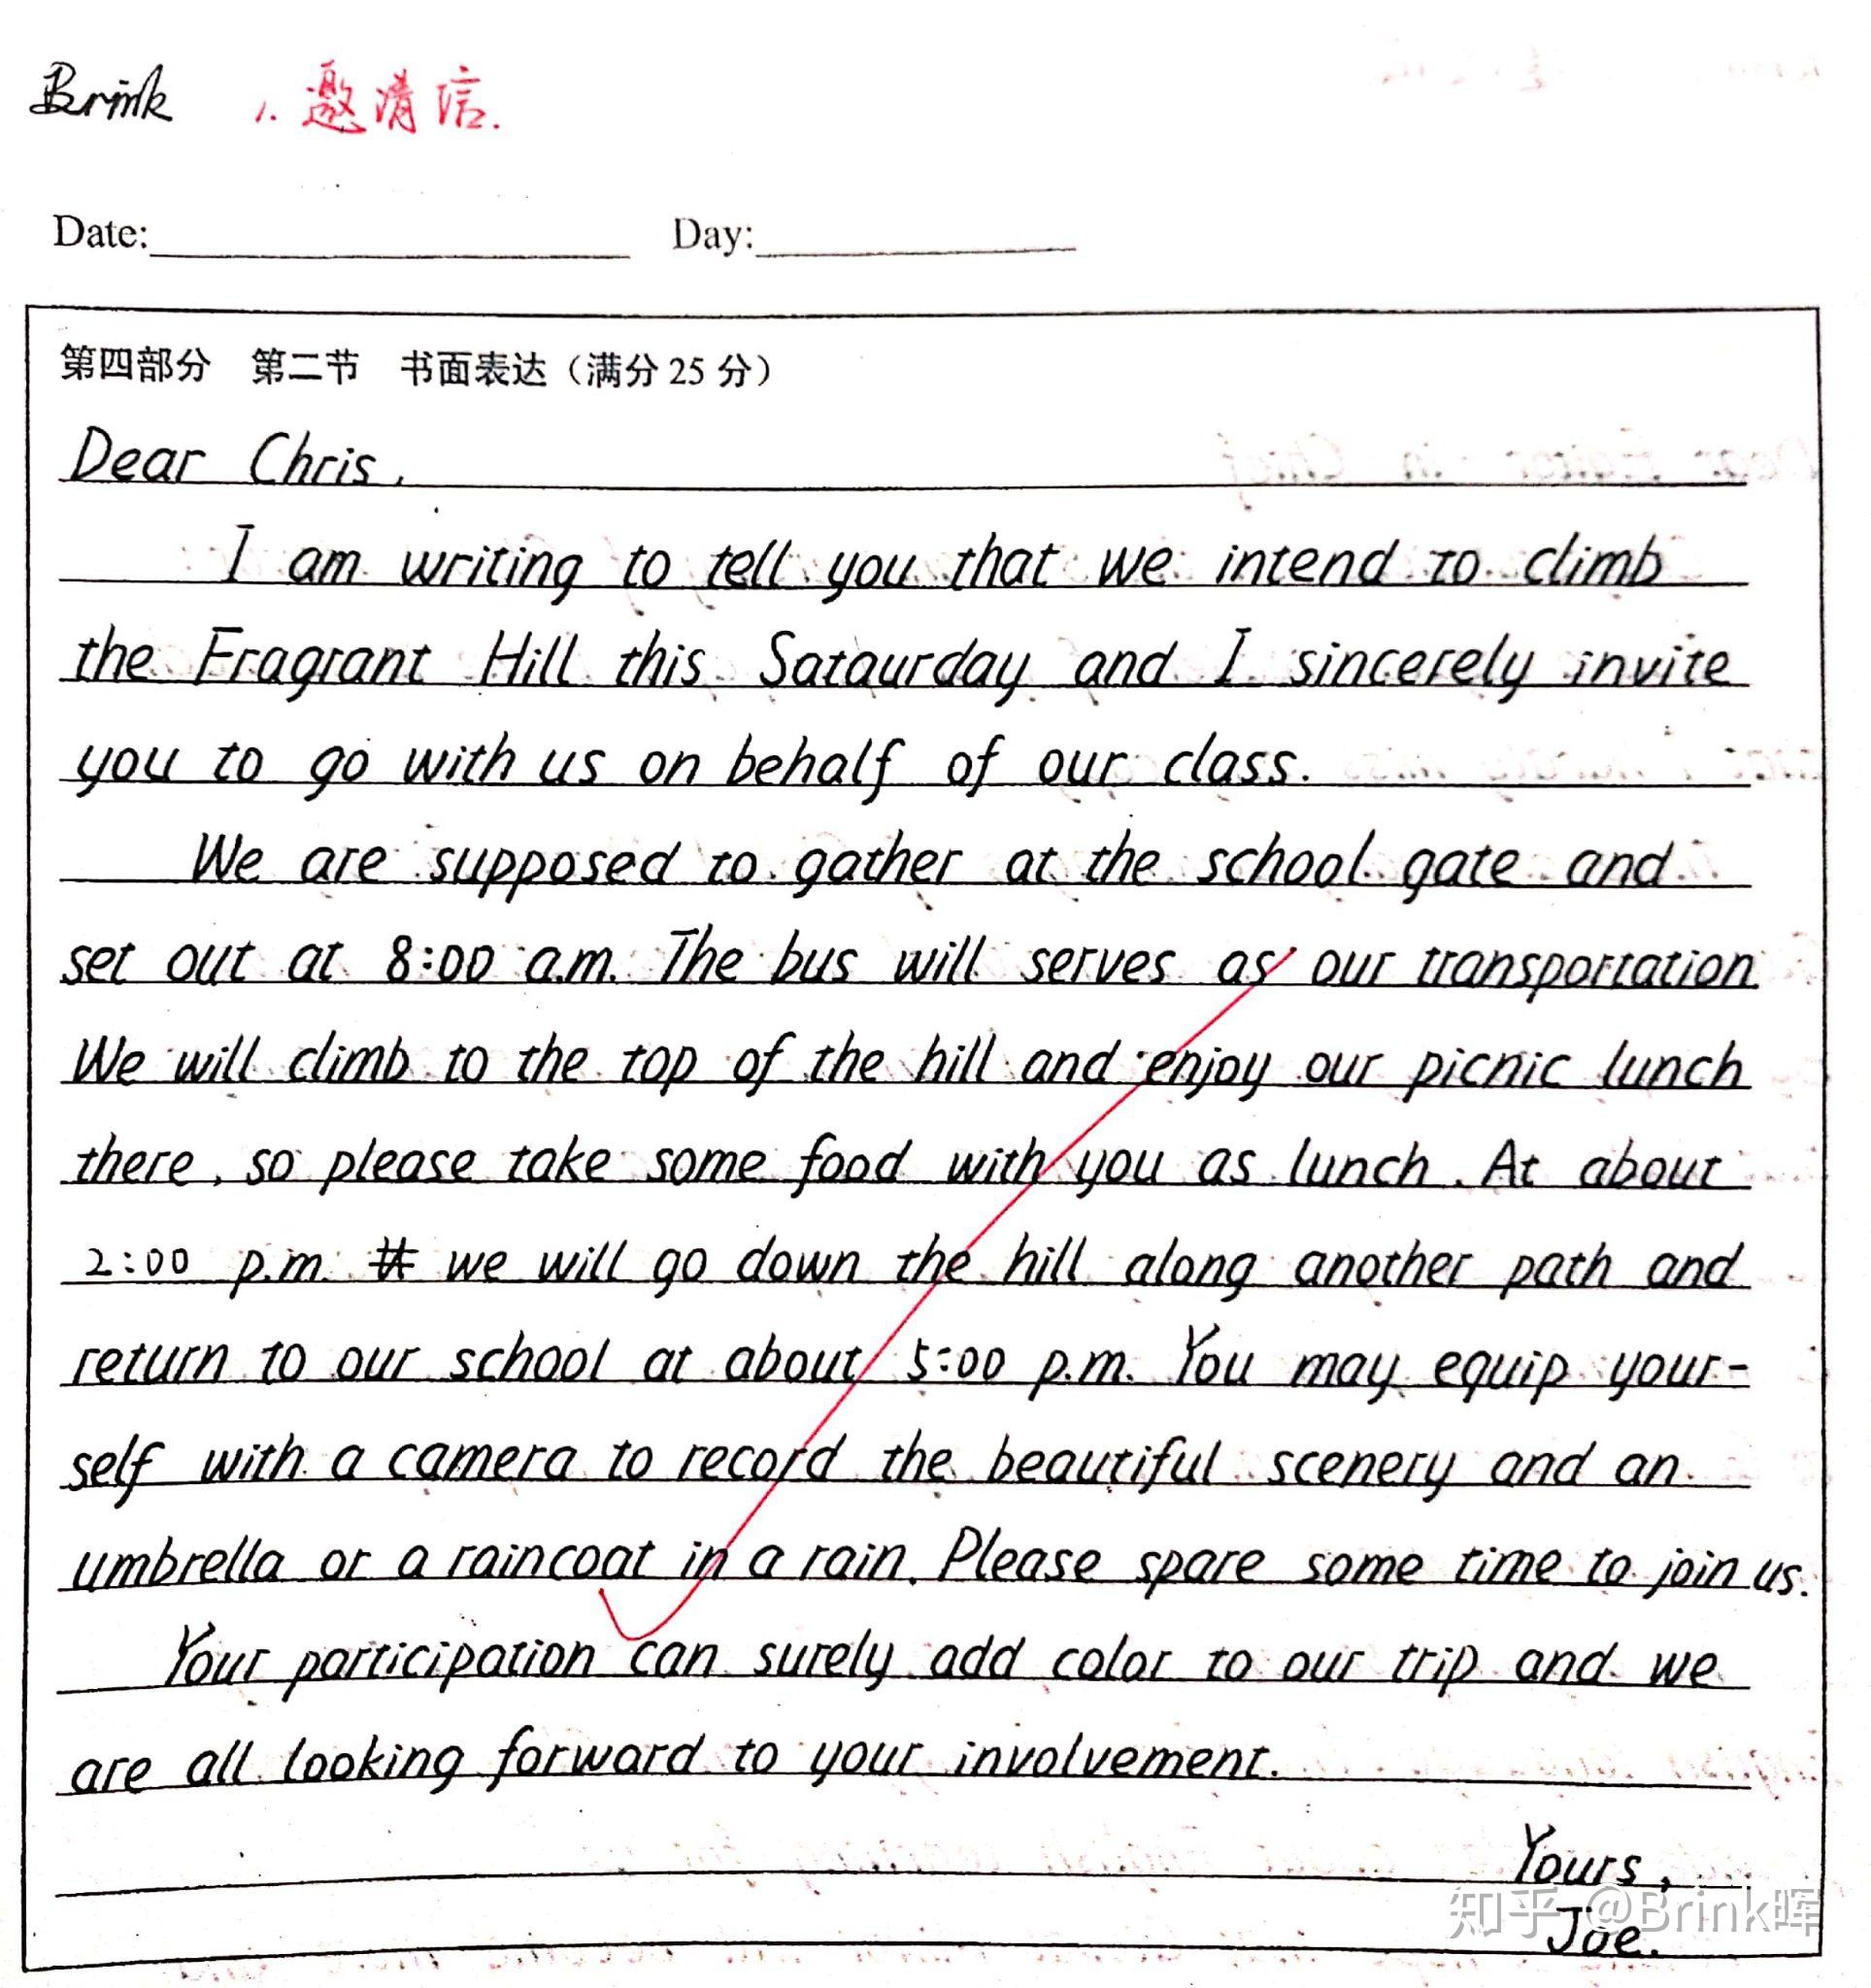 Brink 1. 邀请信.
Date: Day:
第四部分 第二节 书面表达（满分 25 分）
Dear Chris,
I am writing to tell you that we intend to climb
the Fragrant Hill this Sataurday and I sincerely invite
you to go with us on behalf of our class.
We are supposed to gather at the school gate and
set out at 8:00 a.m. The bus will serves as our transportation.
We will climb to the top of the hill and enjoy our picnic lunch
there, so please take some food with you as lunch. At about
2:00 p.m. we will go down the hill along another path and
return to our school at about 5:00 p.m. You may equip your-
self with a camera to record the beautiful scenery and an
umbrella or a raincoat in a rain. Please spare some time to join us.
Your participation can surely add color to our trip and we
are all looking forward to your involvement.
Yours,
Joe.
知乎 @Brink晖